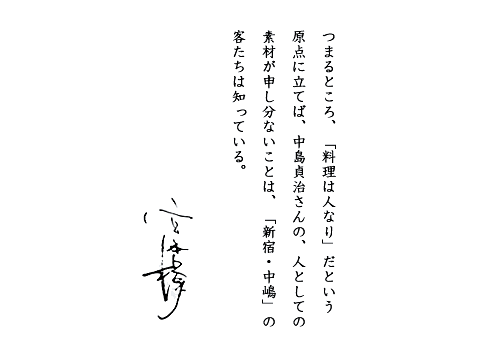 つまるところ、「料理は人なり」だという
原点に立てば、中島貞治さんの、人としての
素材が申し分ないことは、「新宿・中嶋」の
客たちは知っている。